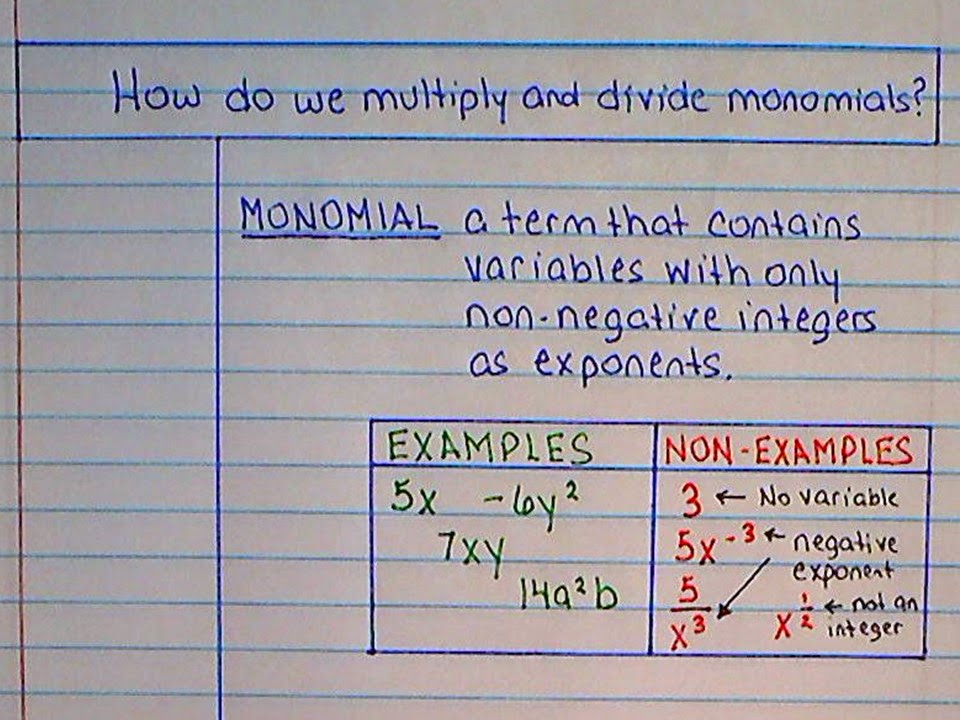 How do we multiply and divide monomials?
MONOMIAL a term that contains
variables with only
non-negative integers
as exponents.
EXAMPLES
5x -6y²
7xy
14a²b
NON-EXAMPLES
3 ← No variable
5x⁻³ ← negative
exponent
5/x³
x^(1/2) ← not an
integer